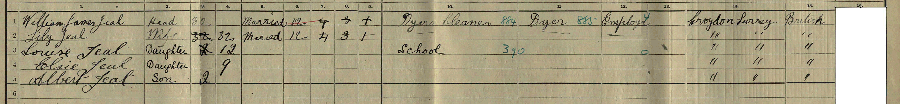 1 William James Jeal Head 32 Married 12 4 3 1 Dyer Cleaner 884 Dyer 885 Employ Croydon Surrey British
2 Lily Jeal Wife 32 Married 12 4 3 1 " " "
3 Louise Jeal Daughter 12 School 390 0 " " "
4 Elsie Jeal Daughter 9 " " "
5 Albert Jeal Son 2 " " "
6